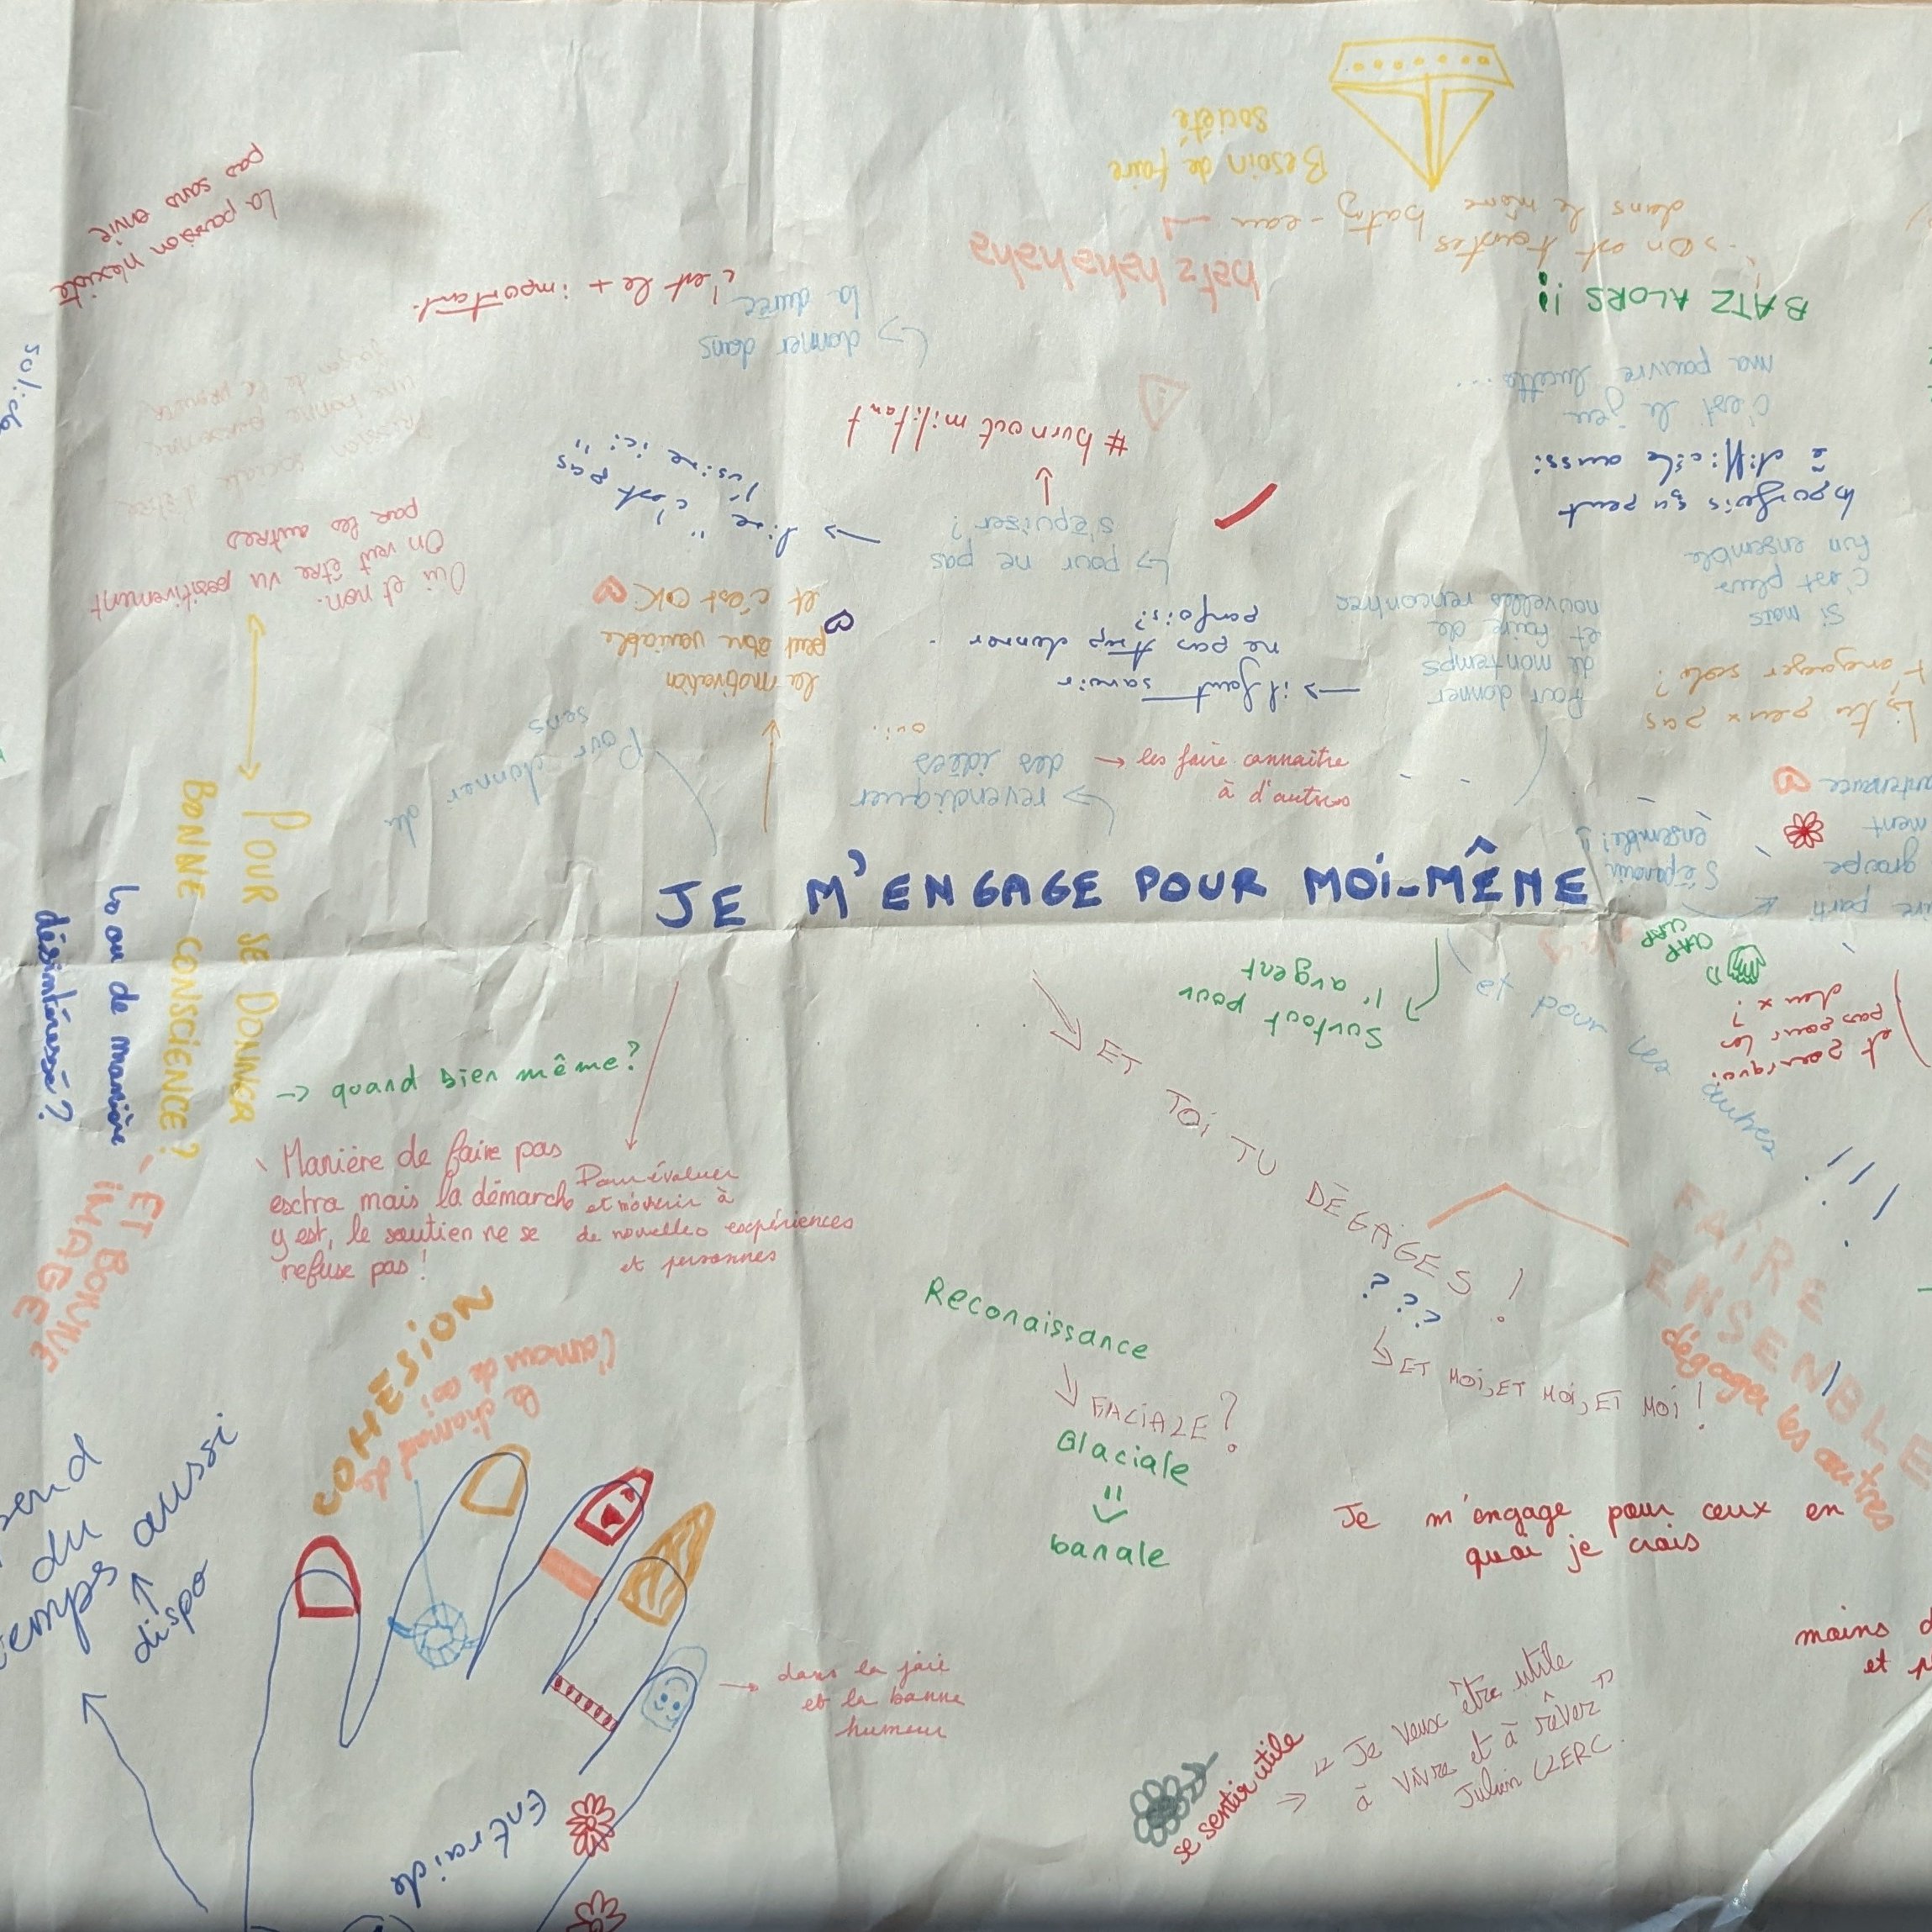 JE M'ENGAGE POUR MOI-MÊME
Besoin de faire
société
-> On est toustes
dans le même batz-eau
batz hahahaha
BATZ ALORS !!
c'est le jeu
ma pauvre lucette...
parfois ça peut
ê difficile aussi
Si mais
c'est plus
fun ensemble
tu peux pas
t'engager solo ?
S'épanouir
ensemble !!
groupe
ment
Pour donner
de mon temps
et faire de
nouvelles rencontres
-> il faut savoir
ne pas trop donner
parfois ?
-> pour ne pas
s'épuiser ?
# burn out militant
-> dire "c'est pas
l'usine ici"
-> donner dans
la durée
c'est le + important.
La passion n'existe
pas sans envie
Pression sociale d'être
une bonne personne
Oui et non.
On veut être vu positivement
par les autres
La motivation
peut être variable
et c'est OK
Pour donner du
sens
-> revendiquer
des idées
oui..
-> les faire connaître
à d'autres
solide
POUR SE DONNER
BONNE CONSCIENCE ?
ET BONNE
IMAGE
ou de manière
désintéressé ?
-> quand bien même ?
Manière de faire pas
exctra mais la démarche
y est, le soutien ne se
refuse pas !
Pour évaluer
et m'ouvrir à
de nouvelles expériences
et personnes
Surtout pour
l'argent
et pour les autres
CLAP
CLAP
et pourquoi
pas pour les
deux ?
!!!
ET TOI TU DÉGAGES !
???
ET MOI, ET MOI, ET MOI !
FAIRE
ENSEMBLE
dégager les autres
Reconaissance
FACIALE ?
Glaciale
=
banale
Je m'engage pour ceux en
quoi je crois
moins d
et p
se sentir utile
-> "Je veux être utile
à vivre et à rêver"
Julien CLERC.
COHESION
le diamant de
l'amour de soi
-> dans la joie
et la bonne
humeur
Entraide
du
temps aussi
dispo